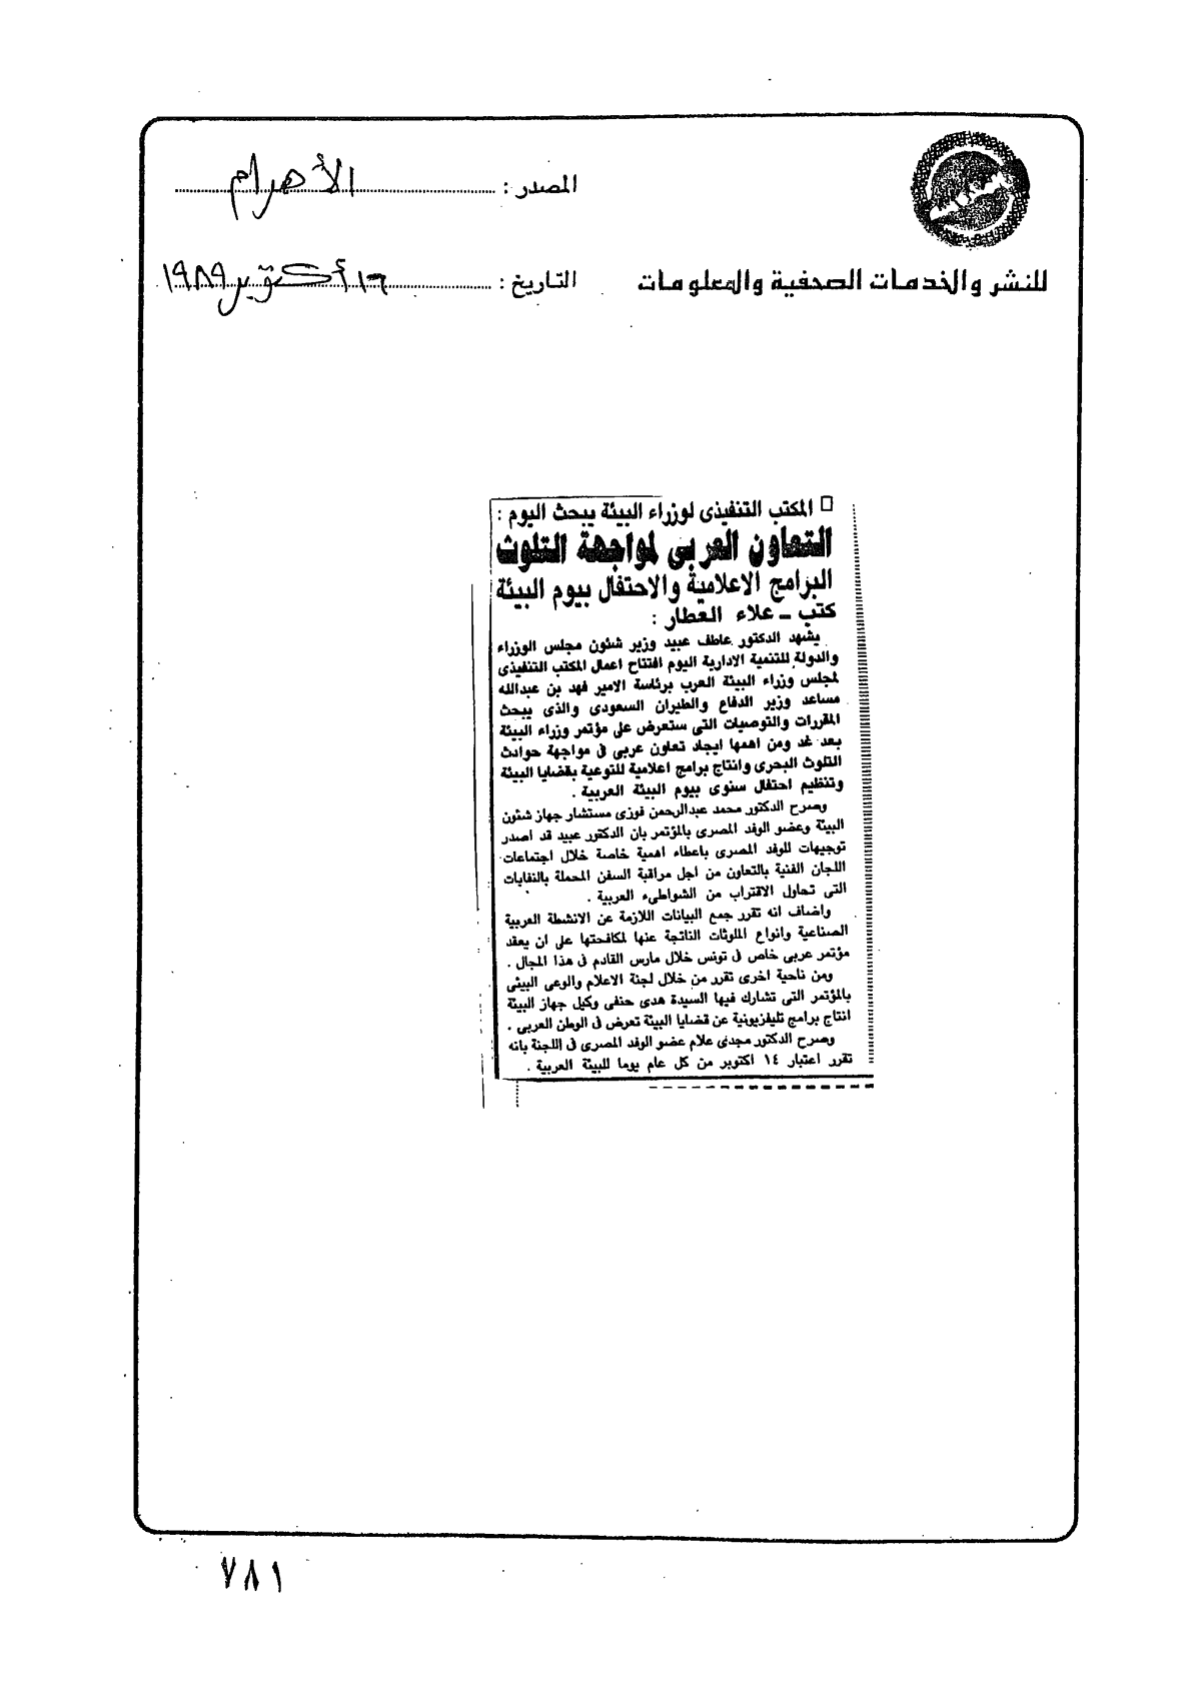 المصدر : الأهرام
للنشر والخدمات الصحفية والمعلومات
التاريخ : ١٦ أكتوبر ١٩٨٩
المكتب التنفيذى لوزراء البيئة يبحث اليوم :
التعاون العربى لمواجهة التلوث
البرامج الاعلامية والاحتفال بيوم البيئة
كتب ــ علاء العطار :
يشهد الدكتور عاطف عبيد وزير شئون مجلس الوزراء
والدولة للتنمية الادارية اليوم افتتاح اعمال المكتب التنفيذى
لمجلس وزراء البيئة العرب برئاسة الامير فهد بن عبدالله
مساعد وزير الدفاع والطيران السعودى والذى يبحث
المقررات والتوصيات التى ستعرض على مؤتمر وزراء البيئة
بعد غد ومن اهمها ايجاد تعاون عربى فى مواجهة حوادث
التلوث البحرى وانتاج برامج اعلامية للتوعية بقضايا البيئة
وتنظيم احتفال سنوى بيوم البيئة العربية .
وصرح الدكتور محمد عبدالرحمن فوزى مستشار جهاز شئون
البيئة وعضو الوفد المصرى بالمؤتمر بان الدكتور عبيد قد اصدر
توجيهات للوفد المصرى باعطاء اهمية خاصة خلال اجتماعات
اللجان الفنية بالتعاون من اجل مراقبة السفن المحملة بالنفايات
التى تحاول الاقتراب من الشواطىء العربية .
واضاف انه تقرر جمع البيانات اللازمة عن الانشطة العربية
الصناعية وانواع الملوثات الناتجة عنها لمكافحتها على ان يعقد
مؤتمر عربى خاص فى تونس خلال مارس القادم فى هذا المجال .
ومن ناحية اخرى تقرر من خلال لجنة الاعلام والوعى البيئى
بالمؤتمر التى تشارك فيها السيدة هدى حنفى وكيل جهاز البيئة
انتاج برامج تليفزيونية عن قضايا البيئة تعرض فى الوطن العربى .
وصرح الدكتور مجدى علام عضو الوفد المصرى فى اللجنة بانه
تقرر اعتبار ١٤ اكتوبر من كل عام يوما للبيئة العربية .
٧٨١